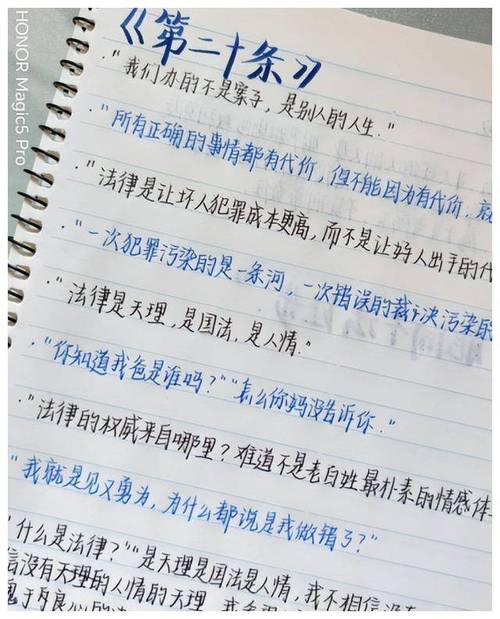 《第二十条》
."我们办的不是案子，是别人的人生."
."所有正确的事情都有代价，但不能因为有代价，就
."法律是让坏人犯罪成本更高，而不是让好人出手的代
."一次犯罪污染的是一条河，一次错误的裁决污染的
."法律是天理，是国法，是人情."
."你知道我爸是谁吗？""怎么你妈没告诉你."
."法律的权威来自哪里？难道不是老白姓最朴素的情感体
"我就是见义勇为，为什么都说是我做错了？"
"什么是法律？""是天理是国法是人情，我不相信没有
信没有天理的人情的天理，我
HONOR Magic5 Pro